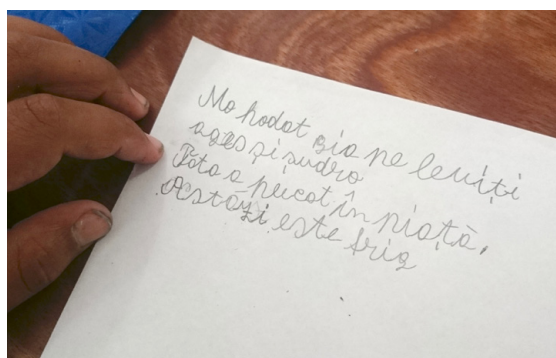 Mo hodot zio pe leuiți
ages și sudro
Tota a plecat în piață.
Astăzi este frig